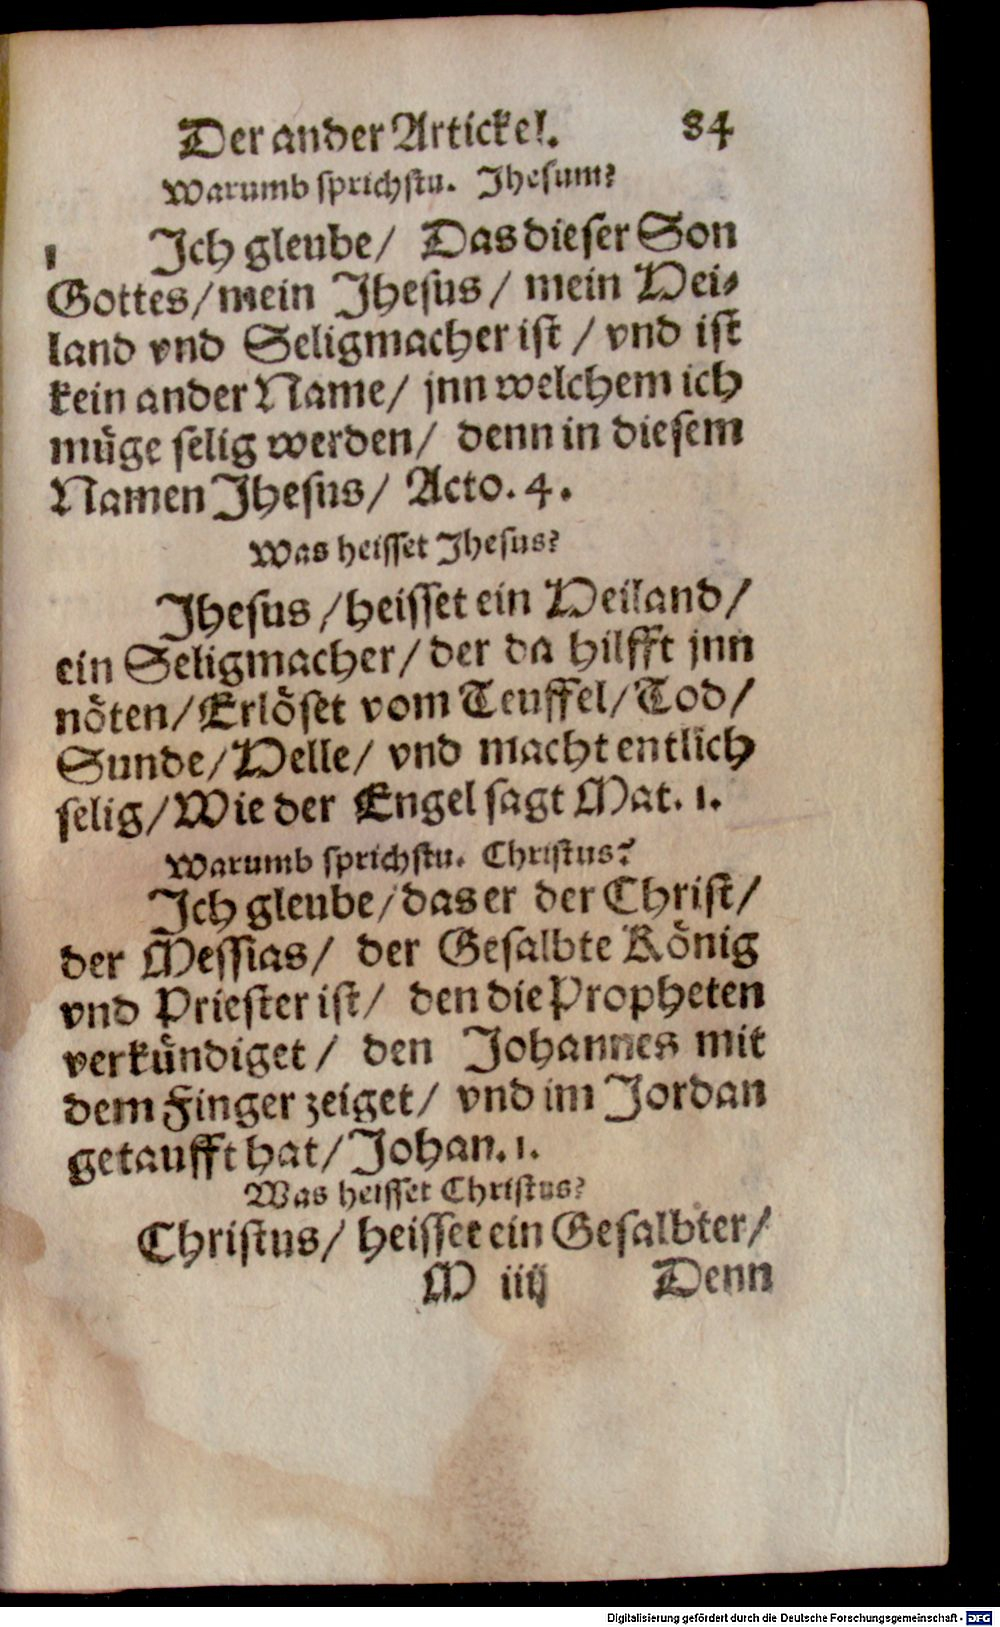 Der ander Artickel. 84
Warumb sprichstu. Jhesum?
1 Ich gleube/ Das dieser Son
Gottes/ mein Jhesus/ mein Hei-
land vnd Seligmacher ist/ vnd ist
kein ander Name/ jnn welchem ich
müge selig werden/ denn in diesem
Namen Jhesus/ Acto. 4.
Was heisset Jhesus?
Jhesus/ heisset ein Heiland/
ein Seligmacher/ der da hilfft jnn
nöten/ Erlöset vom Teuffel/ Tod/
Sunde/ Helle/ vnd macht entlich
selig/ Wie der Engel sagt Mat. 1.
Warumb sprichstu. Christus?
Ich gleube/ das er der Christ/
der Messias/ der Gesalbte König
vnd Priester ist/ den die Propheten
verkündiget/ den Johannes mit
dem Finger zeiget/ vnd im Jordan
getaufft hat/ Johan. 1.
Was heisset Christus?
Christus/ heisset ein Gesalbter/
M iiij Denn
Digitalisierung gefördert durch die Deutsche Forschungsgemeinschaft - DFG